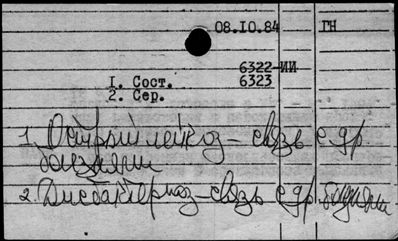 08.IO.84 ГН
6322-ИИ
I. Сост. 6323
2. Сер.
1. Острый лейкоз – связь с др.
болезнями
2. Дисбактериоз – связь с др. болезнями